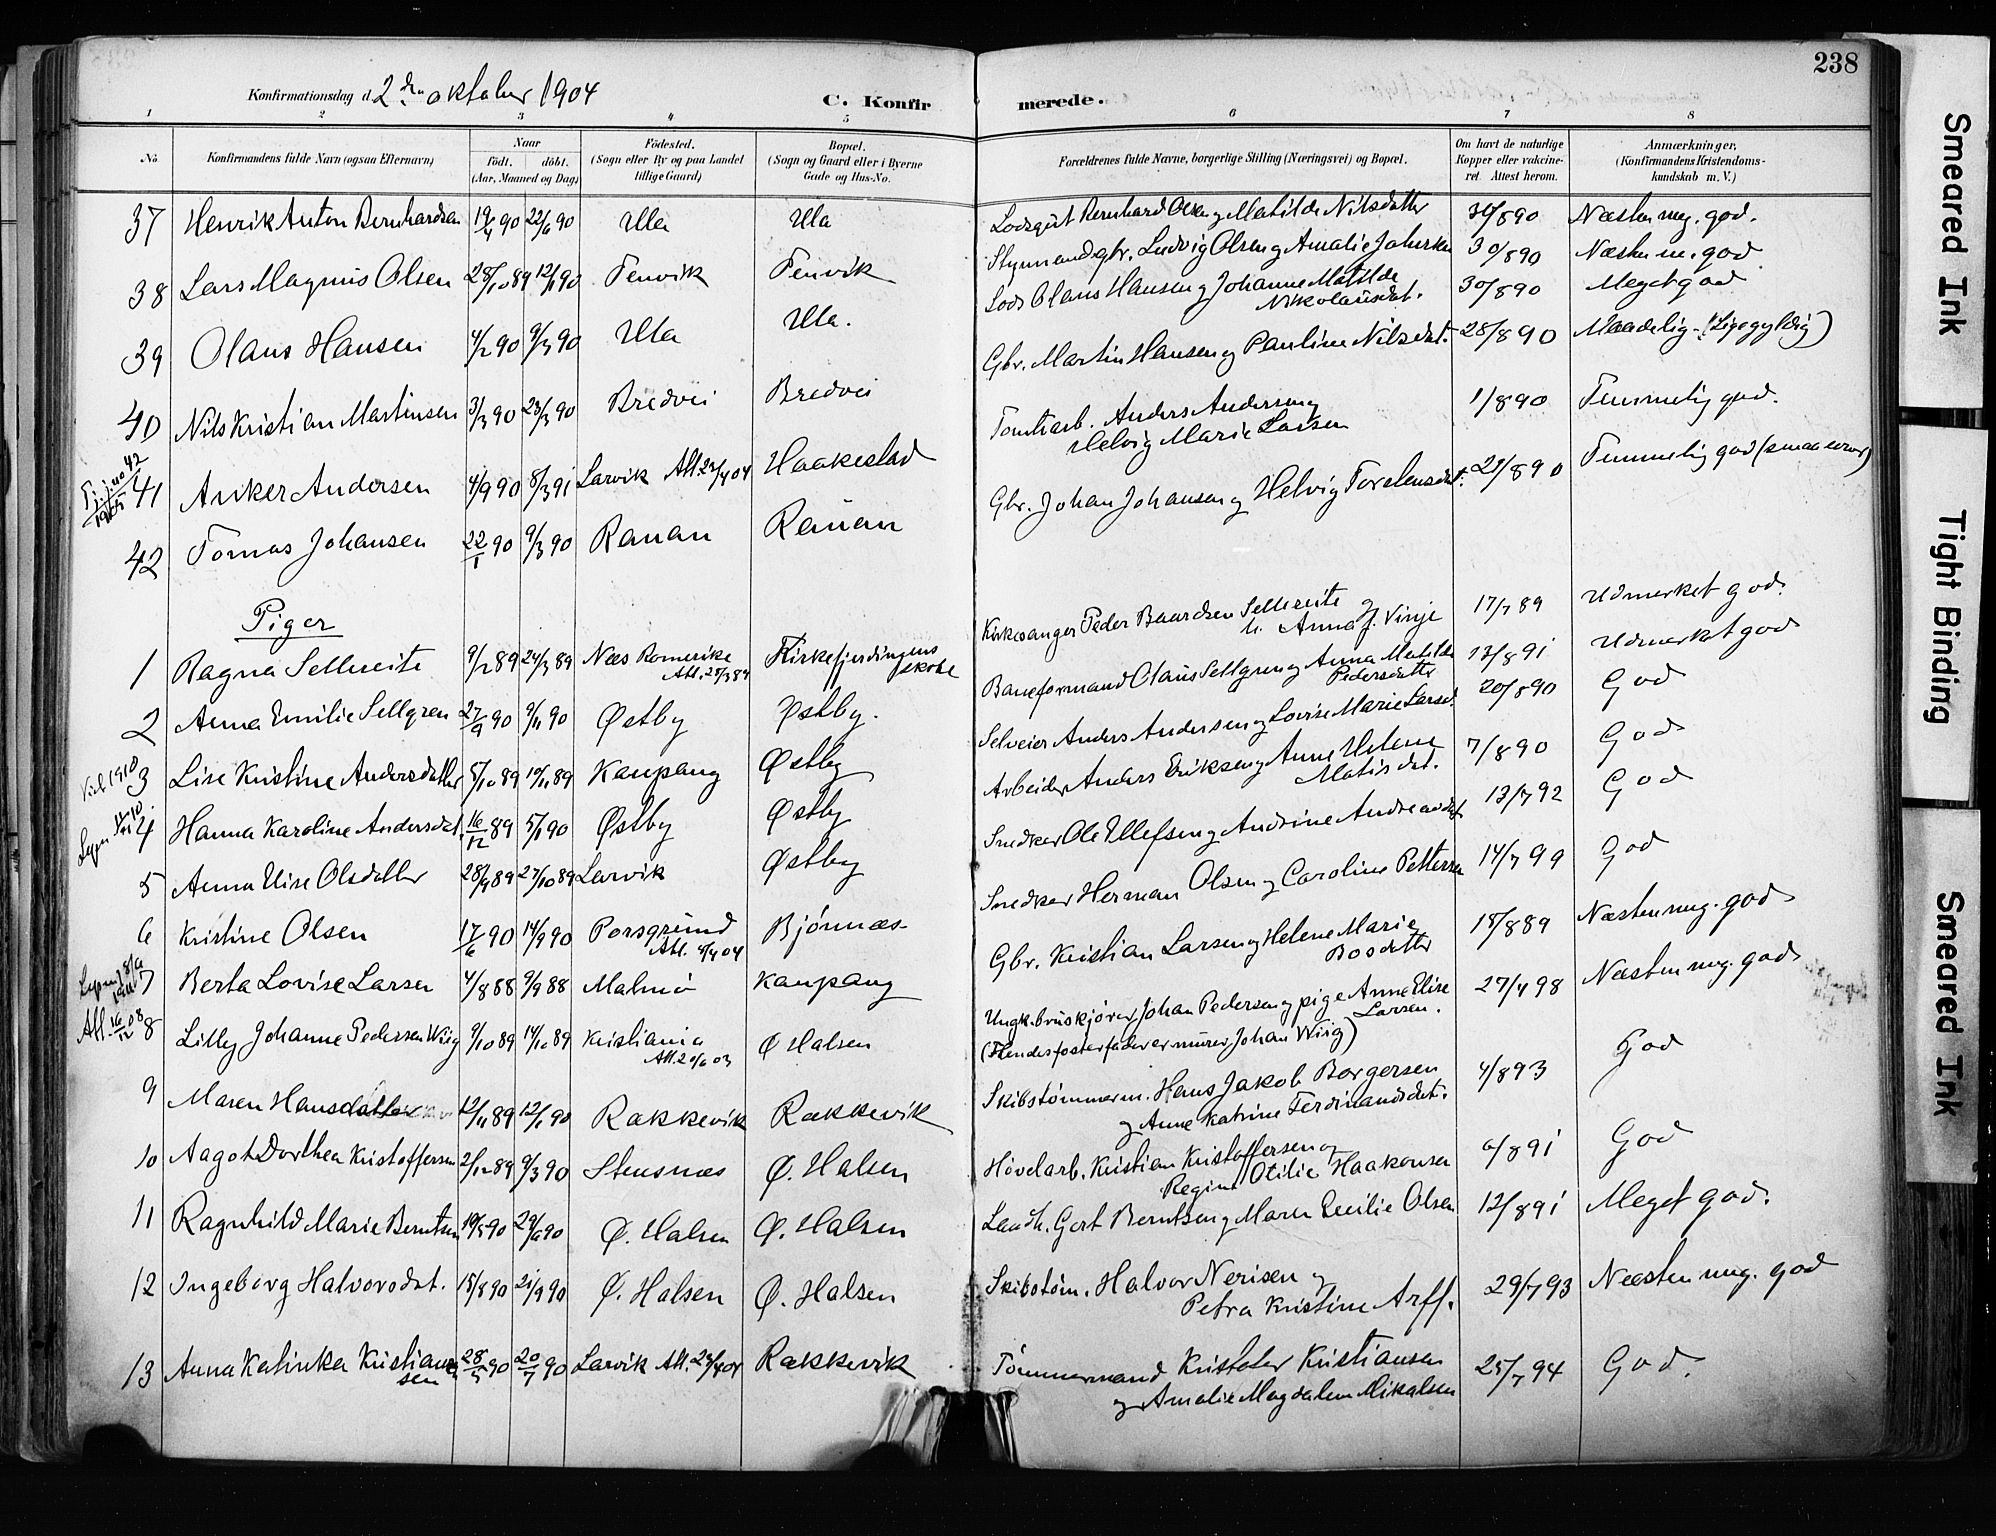 238
Konfirmationsdag d. 2den oktober 1904
C. Konfirmerede.
1 2 3 4 5 6 7 8
No
Konfirmandens fulde Navn (ogsaa Efternavn)
Naar
født. døbt.
(Aar, Maaned og Dag)
Fødested.
(Sogn eller By og paa Landet
tillige Gaard)
Bopæl.
(Sogn og Gaard eller i Byerne
Gade og Hus-No.
Forældrenes fulde Navne, borgerlige Stilling (Næringsvei) og Bopæl.
Om havt de naturlige
Kopper eller vakcine-
ret. Attest herom.
Anmærkninger.
(Konfirmandens Kristendoms-
kundskab m. V.)
37 Henrik Anton Bernhardsen 19/4 90 22/6 90 Ula Ula Lodsgut Bernhard Olsen og Matilde Nilsdatter 30/8 90 Næsten meg. god.
38 Lars Magnus Olsen 28/10 89 12/1 90 Fenvik Fenvik Styrmand gbr. Ludvig Olsen og Amalie 30/8 90 Næsten m. god
39 Olaus Hansen 4/2 90 9/3 90 Ula Ula. Lods Olaus Hansen og Johanne Matilde
Nikolausdat. 30/8 90 Meget god
40 Nils Kristian Martinsen 3/3 90 23/3 90 Bredvei Bredvei Gbr. Martin Hansen og Pauline Nilsdat. 28/8 90 Maadelig. (Ligegyldig)
41 Anker Andersen 4/9 90 8/3 91 Larvik Att. 22/4 04 Haakestad Tomtearb. Anders Andersen og
Helvig Marie Larsen 1/8 90 Temmelig god.
42 Tomas Johansen 22/1 90 9/3 90 Rauan Rauan Gbr. Johan Johansen og Helvig 29/8 90 Temmelig god
Piger
1 Ragna Sellereite 9/2 89 24/3 89 Næs Romerike
Att. Kirkefjerdingens
skole Kirkesanger Peder Baardsen Sellereite og
h. Anna J. Vinje 17/7 89 Udmerket god.
2 Anna Emilie Sellgren 27/9 90 9/11 90 Østby Østby. Baneformand Olaus Sellgren og Anna Matilde
Pedersdatter 13/8 91 Udmerket god
3 Lise Kristine Andersdatter 5/10 89 10/11 89 Kaupang Østby Selveier Anders Andersen og Lovise Marie Larsd. 20/8 90 God
4 Hanna Karoline Andersdat. 16/12 89 5/1 90 Østby Østby Arbeider Anders Eriksen og Anne Helene
Matisdat. 7/8 90 God
5 Anna Elise Olsdatter 28/9 89 27/10 89 Larvik Østby Snedker Ole Ellefsen og Andrine Andreasdat 13/7 92 God
6 Kristine Olsen 17/6 90 14/9 90 Porsgrund
Att. Bjønnæs Snedker Herman Olsen og Caroline Pettersen 14/7 99 God
7 Berta Lovise Larsen 4/8 88 9/9 88 Malmø Kaupang Gbr. Kristian Larsen og Helene Marie
Bosdatter 18/8 89 Næsten meg. god
8 Lilly Johanne Pedersen Wiig 9/10 89 14/10 89 Kristiania
Att. Ø Halsen Ungk. Johan Pedersen og pige Anne Elise
Larsen.
(Hendes fosterfader er murer Johan Wiig) 27/4 98 Næsten meg. god
9 Maren Hansdatter 12/11 89 12/1 90 Rakkevik Rakkevik Skibstømmerm. Hans Jakob Borgersen
og Anne Katrine Ferdinandsdat. 4/8 93 God
10 Aagot Dorthea Kristoffersen 2/12 89 9/3 90 Stensnæs Ø. Halsen Høvelarb. Kristian Kristoffersen og
Regine Otilie Haakonsen 6/8 91 God
11 Ragnhild Marie Berntsen 19/5 90 29/6 90 Ø. Halsen Ø. Halsen Landh. Gert Berntsen og Maren Cecilie Olsen 12/8 91 Meget god.
12 Ingeborg Halvorsdat. 18/8 90 21/9 90 Ø. Halsen Ø. Halsen Skibstøm. Halvor Nerisen og
Petra Kristine Arff. 29/7 93 Næsten meg. god
13 Anna Katinka Kristian
sen 28/5 90 20/7 90 Larvik Att. Rakkevik Tømmermand Kristoler Kristiansen
og Amalie Magdalene Mikalsen 25/7 94 God.
Smeared Ink
Tight Binding
Smeared Ink